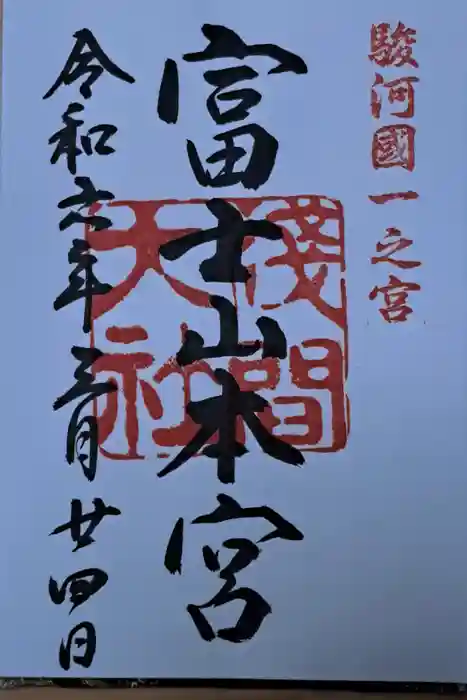 駿河國一之宮
富士山本宮
淺間大社
令和六年三月廿四日